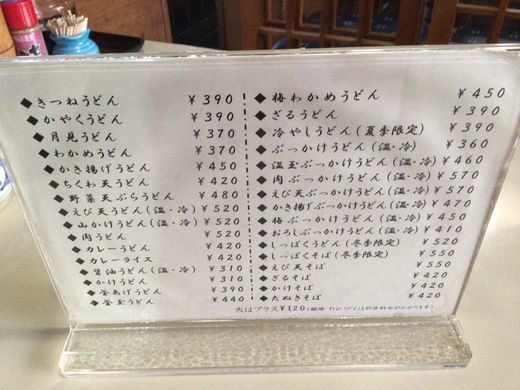 ◆きつねうどん ¥390
◆かやくうどん ¥390
◆月見うどん ¥370
◆わかめうどん ¥370
◆かき揚げうどん ¥450
◆ちくわ天うどん ¥420
◆野菜天ぷらうどん ¥480
◆えび天うどん(温・冷) ¥520
◆山かけうどん(温・冷) ¥520
◆肉うどん ¥520
◆カレーうどん ¥420
◆カレーライス ¥420
◆醤油うどん(温・冷) ¥310
◆かけうどん ¥310
◆釜あげうどん ¥390
◆釜玉うどん ¥440
◆梅わかめうどん ¥450
◆ざるうどん ¥390
◆冷やしうどん(夏季限定) ¥390
◆ぶっかけうどん(温・冷) ¥360
◆温玉ぶっかけうどん(温・冷) ¥460
◆肉ぶっかけうどん(温・冷) ¥570
◆えび天ぶっかけうどん(温・冷) ¥570
◆かき揚げぶっかけうどん(温・冷) ¥470
◆梅ぶっかけうどん(温・冷) ¥450
◆おろしぶっかけうどん(温・冷) ¥410
◆しっぽくうどん(冬季限定) ¥520
◆しっぽくそば(冬季限定) ¥550
◆えび天そば ¥550
◆ざるそば ¥420
◆かけそば ¥420
◆たぬきそば ¥420
大はプラス¥120